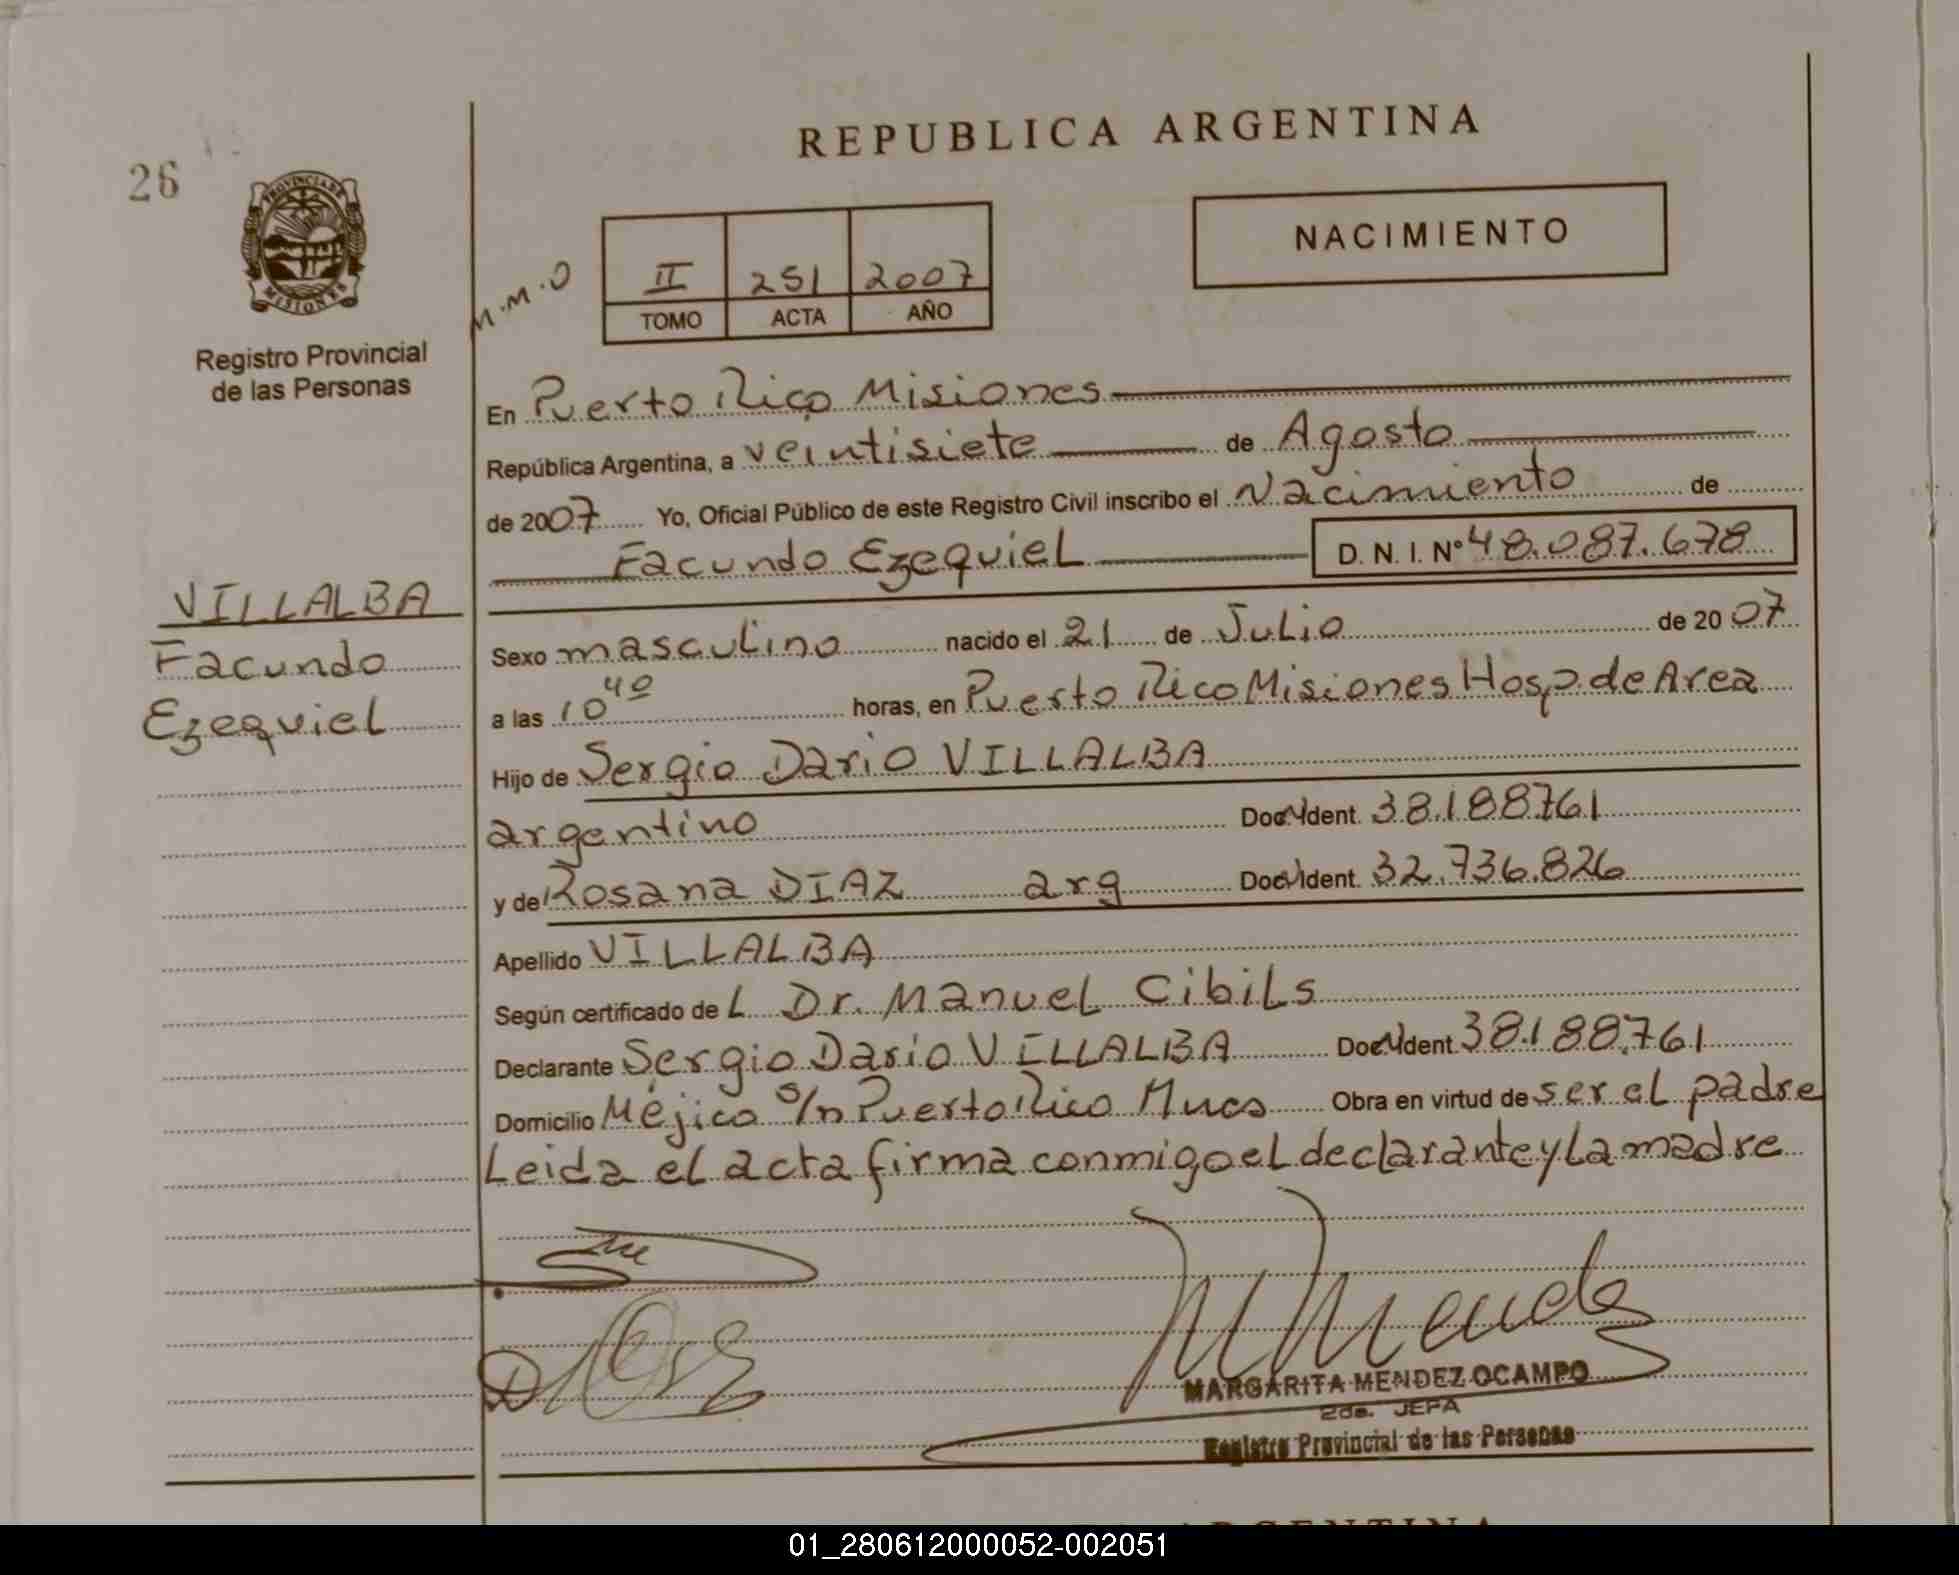 REPUBLICA ARGENTINA
26
PROVINCIA DE
MISIONES
Registro Provincial
de las Personas
M.M.O
II 251 2007
TOMO ACTA AÑO
NACIMIENTO
En Puerto Rico Misiones
República Argentina, a veintisiete de Agosto
de 2007 Yo, Oficial Público de este Registro Civil inscribo el Nacimiento de
Facundo Ezequiel D. N. I. Nº 48.087.678
VILLALBA
Facundo
Ezequiel
Sexo masculino nacido el 21 de Julio de 2007
a las 10 40 horas, en Puerto Rico Misiones Hosp. de Area
Hijo de Sergio Dario VILLALBA
argentino Doc. Ident. 38.188761
y de Rosana DIAZ arg Doc. Ident. 32.736.826
Apellido VILLALBA
Según certificado de L Dr. Manuel Cibils
Declarante Sergio Dario VILLALBA Doc. Ident. 38.188.761
Domicilio Méjico s/n Puerto Rico Mnes Obra en virtud de ser el padre
Leida el acta firma conmigo el declarante y la madre
MARGARITA MENDEZ OCAMPO
2da. JEFA
Registro Provincial de las Personas
01_280612000052-002051